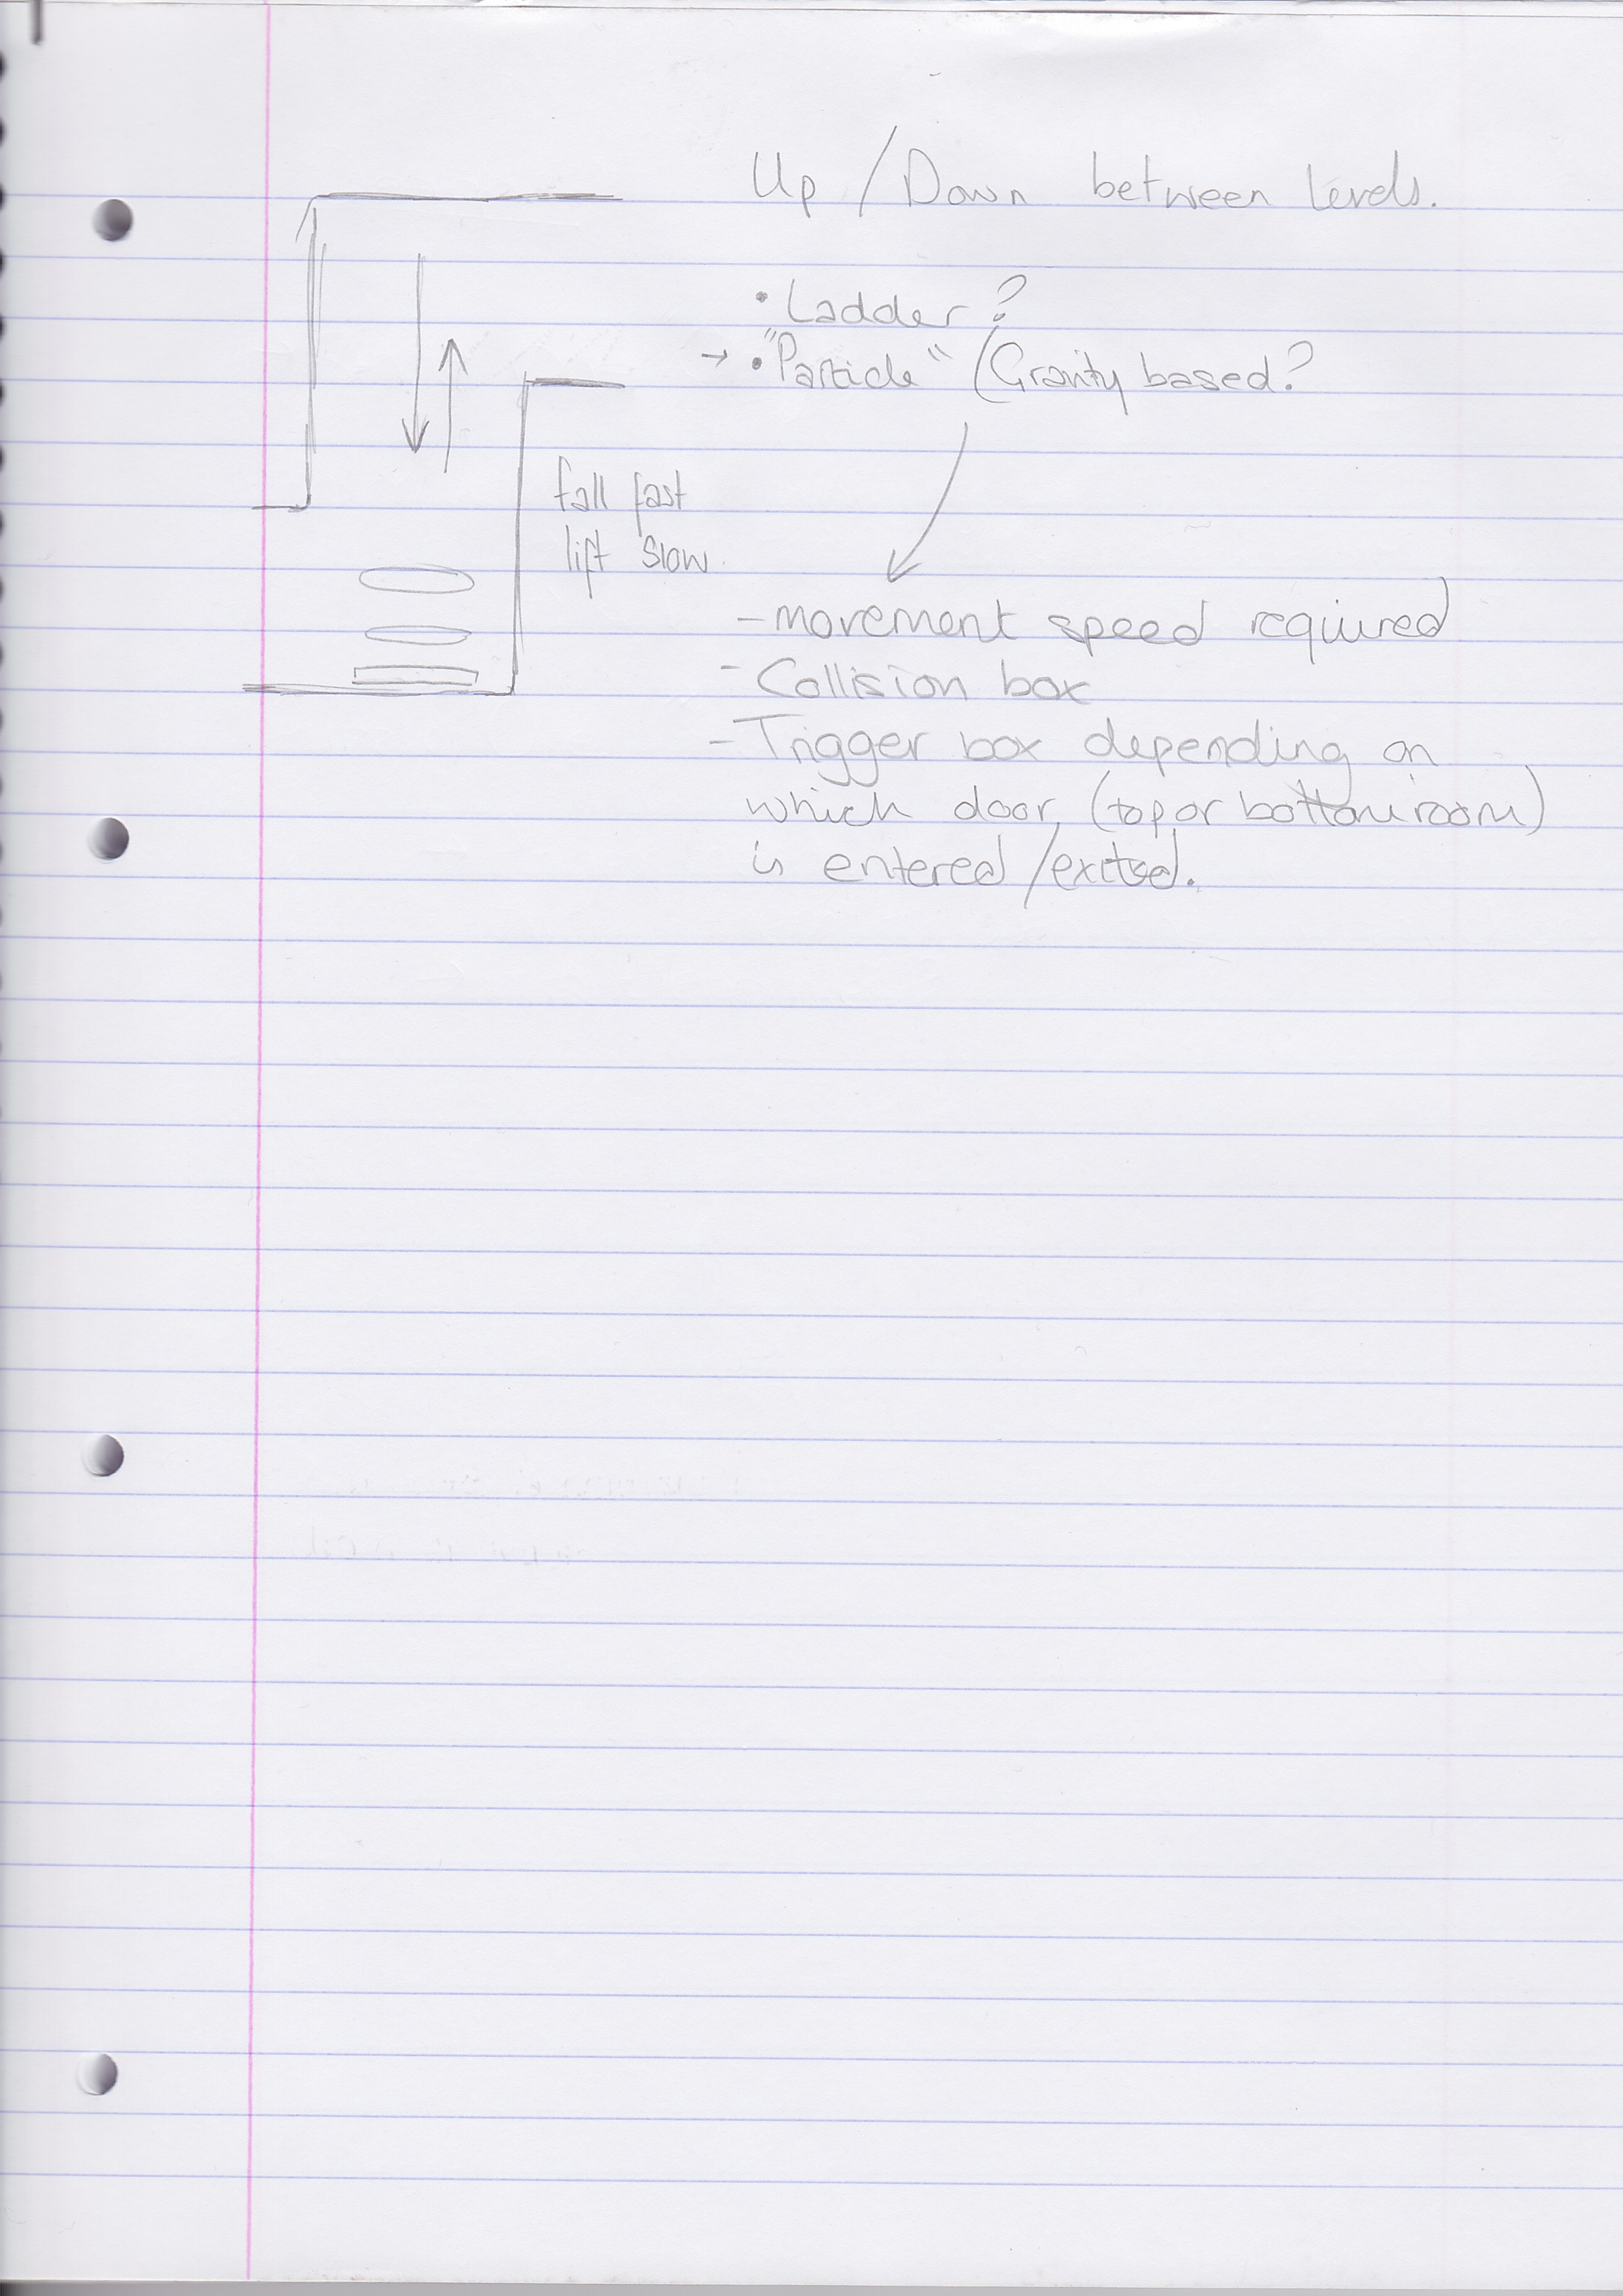 Up / Down between levels.
• Ladder?
→ • "Particle" / Gravity based?
fall fast
lift slow.
- movement speed required
- Collision box
- Trigger box depending on
which door, (top or bottom room)
is entered / exited.